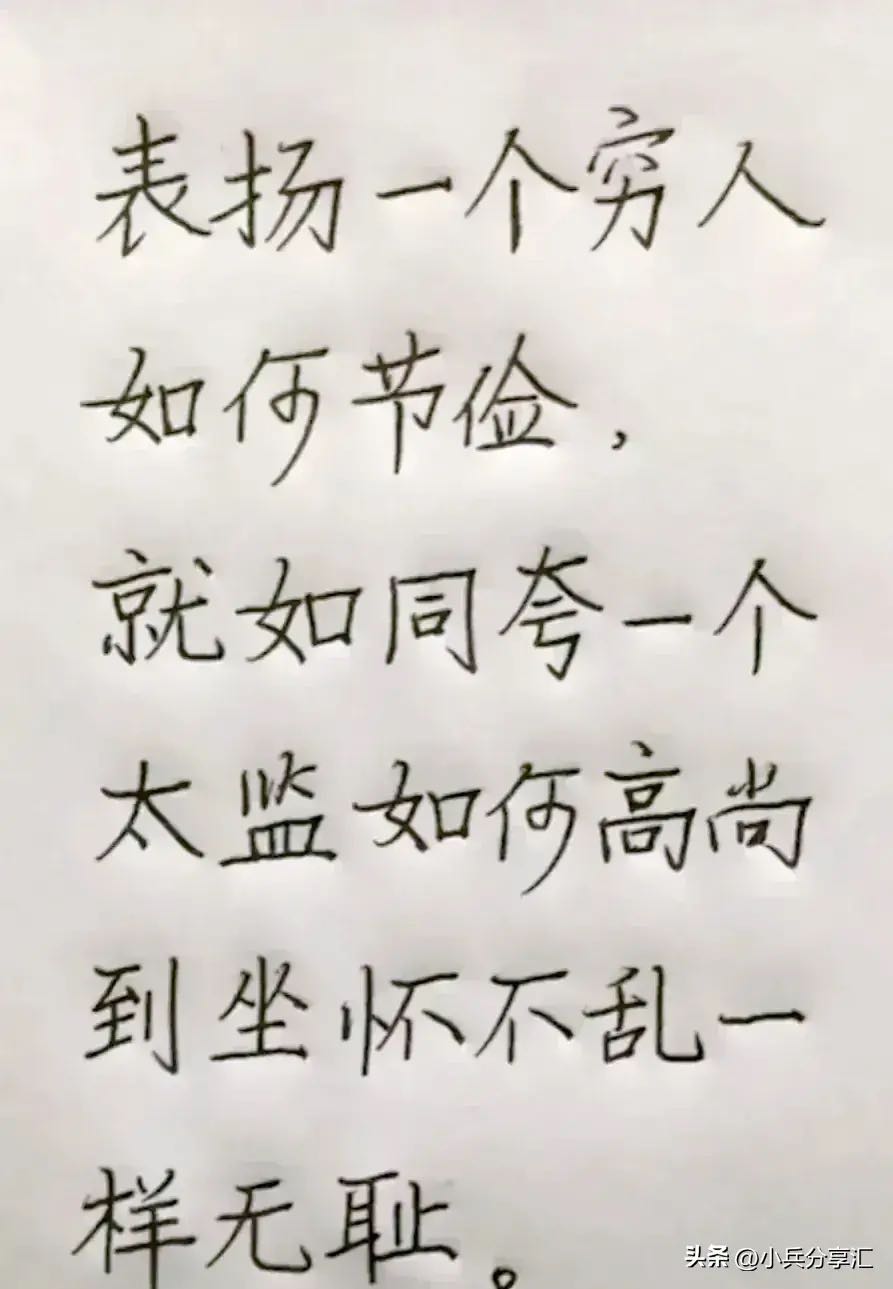 表扬一个穷人
如何节俭，
就如同夸一个
太监如何高尚
到坐怀不乱一
样无耻。
头条 @小兵分享汇